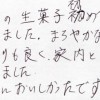 の生菓子
ました。まろやかな
りも良く、家内と
ました
においしかったです